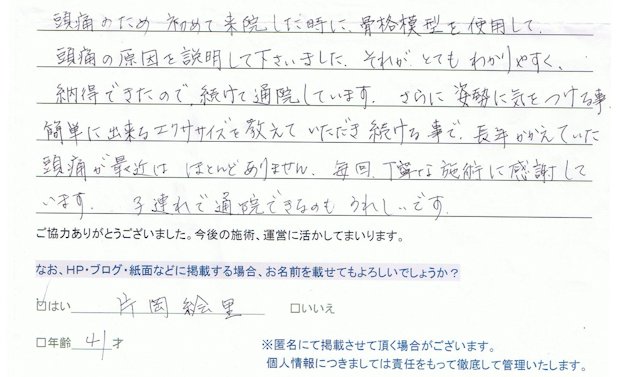 頭痛のため 初めて来院した時に、骨格模型を使用して、
頭痛の原因を説明して下さいました。それが とても わかりやすく、
納得できたので、続けて通院しています。さらに 姿勢に気をつける事、
簡単に出来るエクササイズを教えて いただき 続ける事で、長年かかえていた
頭痛が最近は ほとんどありません。毎回、丁寧な施術に感謝して
います。 子連れで通院できるのも うれしいです。
ご協力ありがとうございました。今後の施術、運営に活かしてまいります。
なお、HP・ブログ・紙面などに掲載する場合、お名前を載せてもよろしいでしょうか？
☑はい 片岡 絵里 □いいえ
□年齢 41 才 ※匿名にて掲載させて頂く場合がございます。
個人情報につきましては責任をもって徹底して管理いたします。